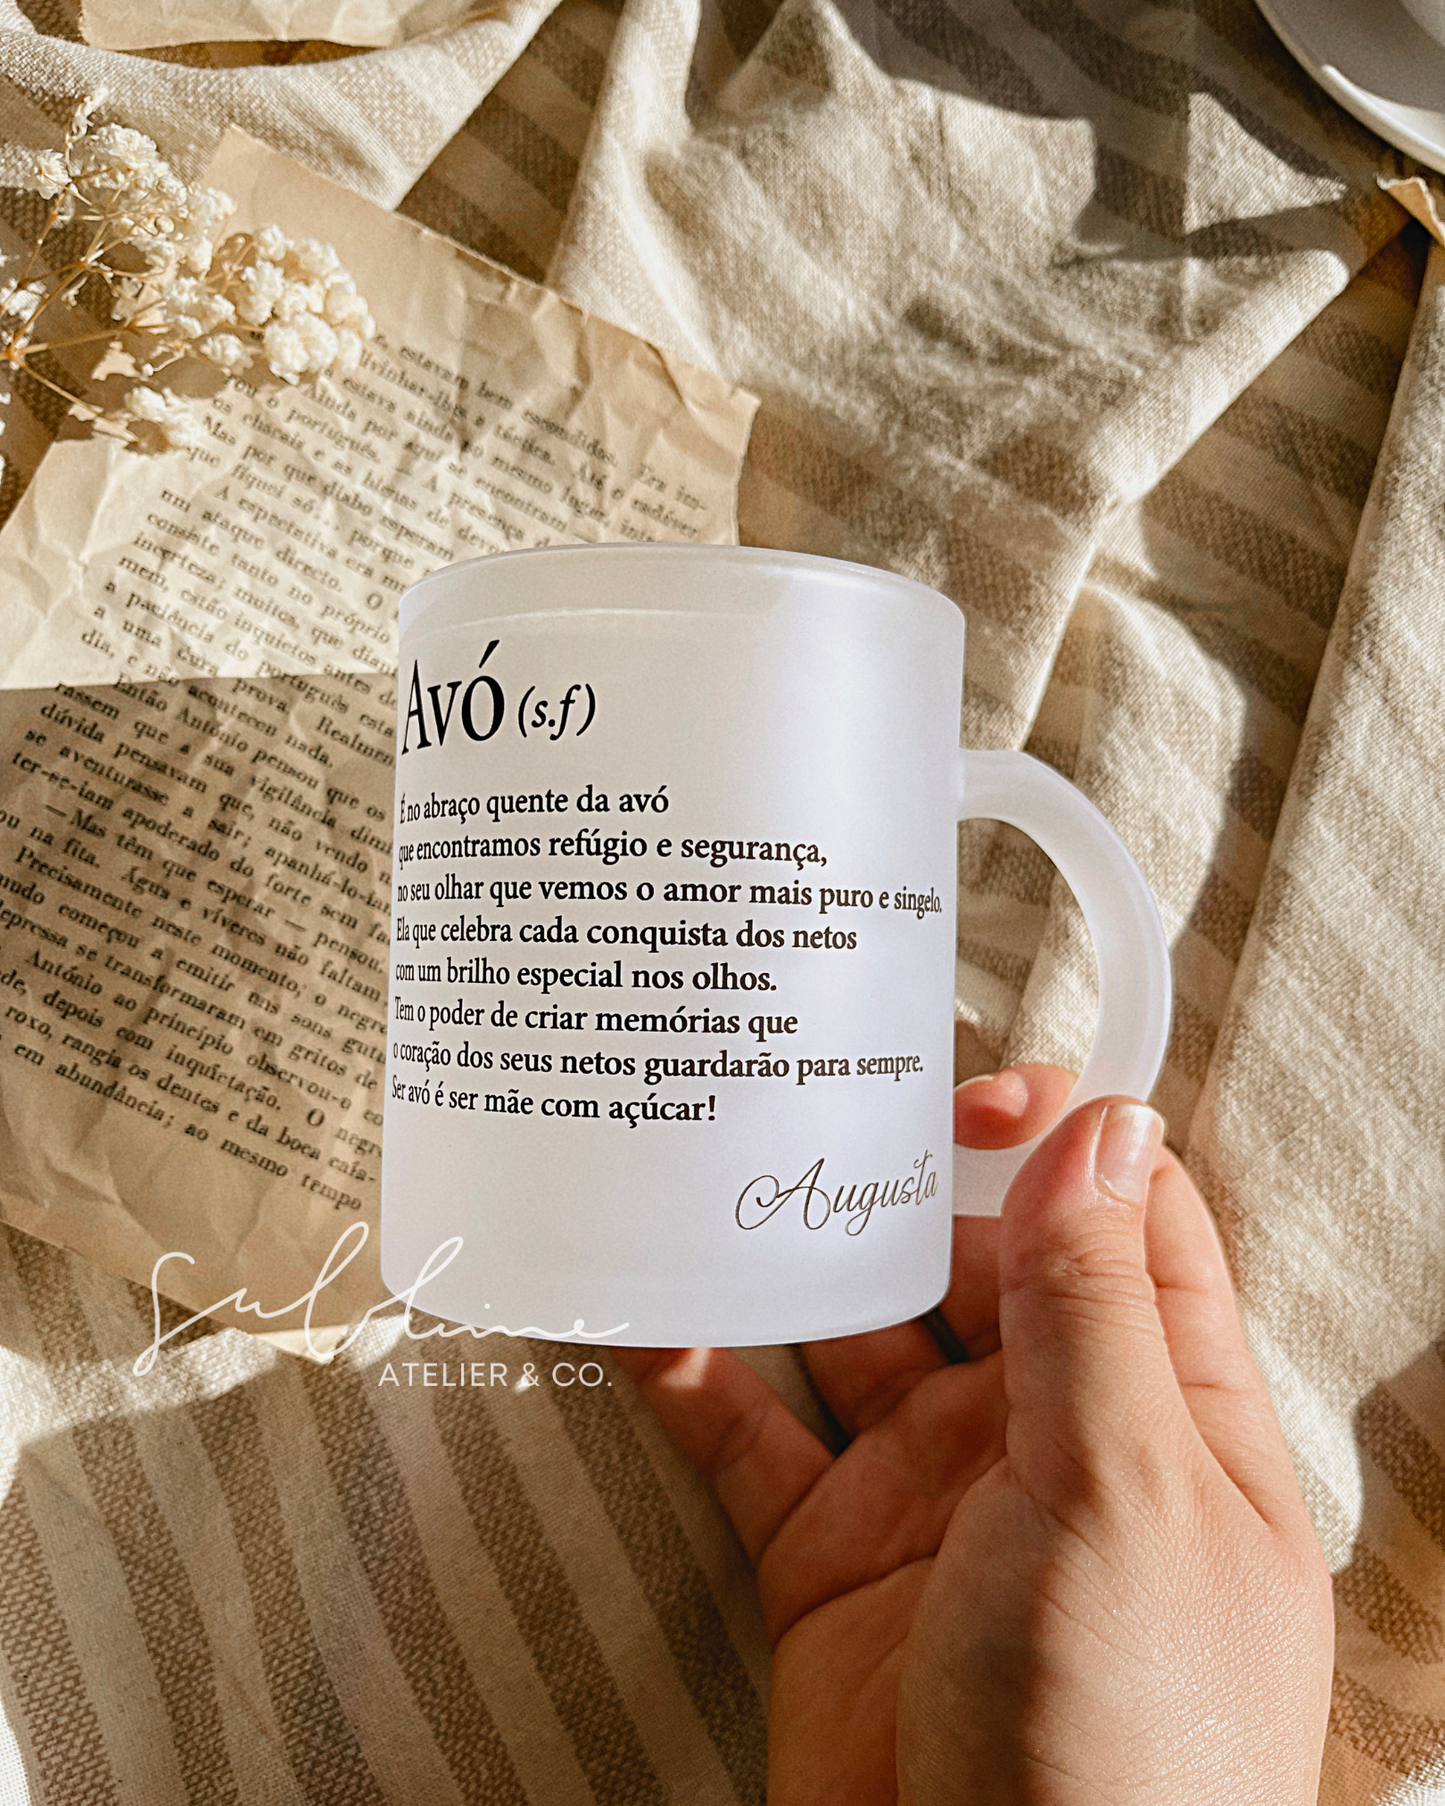 e, estavam bem escondidos. Era im-
livinhar-lhes a táctica. Até o cadáver
a estava ainda no mesmo lugar,
Ainda por aqui se encontram
ou o português. — A presença
os chacais e as hienas de
Mas por que diabo esperam
que fiquei só... porque
A espectativa era
um ataque directo. O
consiste tanto no próprio
incerteza; muitos, que
mem, estão inquietos antes de
a paciência do português esta
a uma dura prova. Realmen
dia, e não aconteceu nada.
Então António pensou que os
rassem que a sua vigilância dimi
dúvida pensavam que, não vendo
se aventurasse a sair; apanhá-lo-iam
ter-se-iam apoderado do forte sem
— Mas têm que esperar — pensou.
ou na fita. Água e víveres não faltam
Precisamente neste momento, o negro
começou a emitir uns sons
depressa se transformaram em gritos de
António ao princípio observou-o
de, depois com inquietação. O negr
roxo, rangia os dentes e da boca caía-
em abundância; ao mesmo tempo
Avó (s.f)
É no abraço quente da avó
que encontramos refúgio e segurança,
no seu olhar que vemos o amor mais puro e singelo.
Ela que celebra cada conquista dos netos
com um brilho especial nos olhos.
Tem o poder de criar memórias que
o coração dos seus netos guardarão para sempre.
Ser avó é ser mãe com açúcar!
Augusta
Sublime
ATELIER & CO.